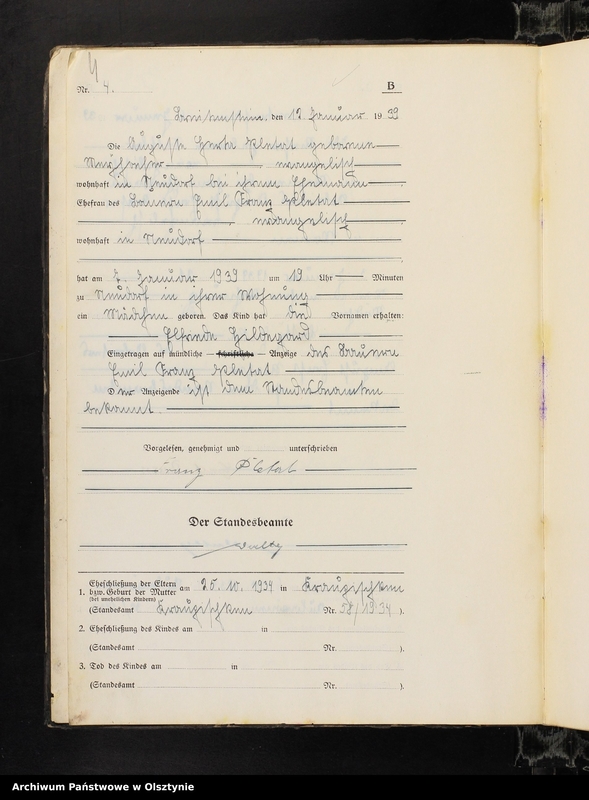 4
Nr. 4. B
Breitenstein, den 12 Januar 1939
Die Auguste Herta Pletat geborene
evangelisch
wohnhaft in Neudorf bei ihrem Ehemann
Ehefrau des Bauern Emil Franz Pletat
evangelisch
wohnhaft in Neudorf
hat am 7. Januar 1939 um 19 Uhr Minuten
zu Neudorf in ihrer Wohnung
ein Mädchen geboren. Das Kind hat die Vornamen erhalten:
Elfriede Hildegard
Eingetragen auf mündliche – schriftliche – Anzeige des Bauern
Emil Franz Pletat
Der Anzeigende ist dem Standesbeamten
bekannt.
Vorgelesen, genehmigt und unterschrieben
Franz Pletat
Der Standesbeamte
1. Eheschließung der Eltern
bzw. Geburt der Mutter am 25. 10. 1934 in Kraupischken
(bei unehelichen Kindern)
(Standesamt Kraupischken Nr. 58/1934 ).
2. Eheschließung des Kindes am in
(Standesamt Nr. ).
3. Tod des Kindes am in
(Standesamt Nr. ).
Archiwum Państwowe w Olsztynie